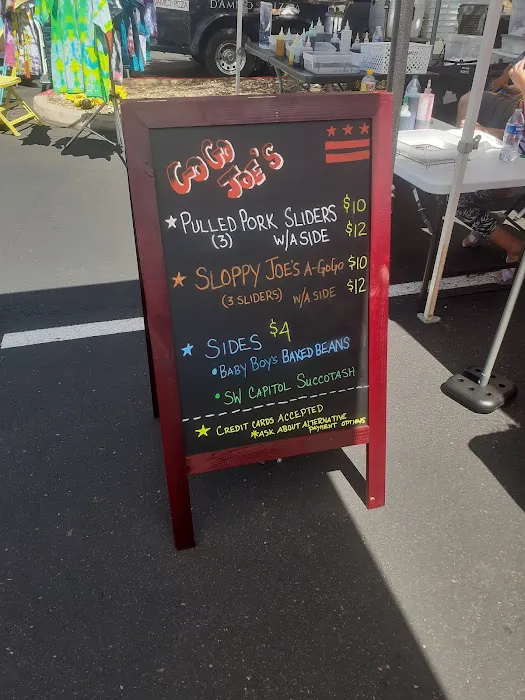 D'AMBO PIZZA
GOGO
JOE'S
★ PULLED PORK SLIDERS $10
(3) W/A SIDE $12
★ SLOPPY JOE'S A-GOGO $10
(3 SLIDERS) W/A SIDE $12
★ SIDES $4
• BABY BOY'S BAKED BEANS
• SW CAPITOL SUCCOTASH
★ CREDIT CARDS ACCEPTED
*ASK ABOUT ALTERNATIVE
PAYMENT OPTIONS